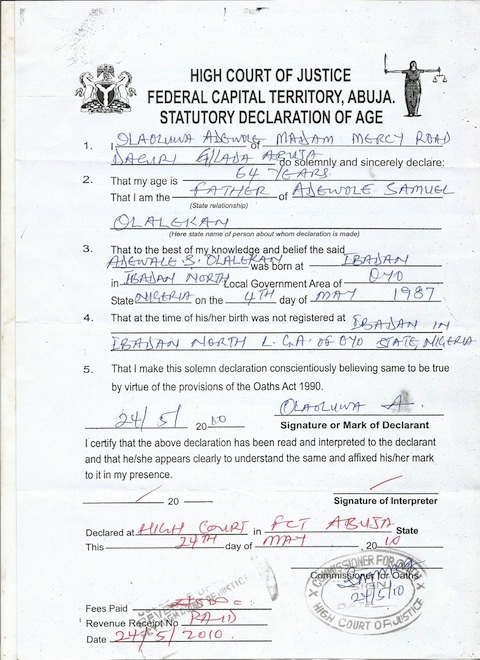 HIGH COURT OF JUSTICE
FEDERAL CAPITAL TERRITORY, ABUJA.
STATUTORY DECLARATION OF AGE
1. I OLAOLUWA ADEWOLE of MADAM MERCY ROAD
DAGIRI G/LADA ABUJA do solemnly and sincerely declare:
2. That my age is 64 YEARS
That I am the FATHER of ADEWOLE SAMUEL
(State relationship)
OLALEKAN
(Here state name of person about whom declaration is made)
3. To the best of my knowledge and belief the said
ADEWALE S. OLALEKAN was born at IBADAN
in IBADAN NORTH Local Government Area of OYO
State NIGERIA on the 4TH day of MAY 1987
4. That at the time of his/her birth was not registered at IBADAN IN
IBADAN NORTH L.G.A. OF OYO STATE, NIGERIA
5. That I make this solemn declaration conscientiously believing same to be true
by virtue of the provisions of the Oaths Act 1990.
24/5/ 2010 OLAOLUWA A.
Signature or Mark of Declarant
I certify that the above declaration has been read and interpreted to the declarant
and that he/she appears clearly to understand the same and affixed his/her mark
to it in my presence.
20
Signature of Interpreter
Declared at HIGH COURT in FCT ABUJA State
This 24TH day of MAY , 2010
Commissioner for Oaths
COMMISSIONER FOR OATHS
24/5/10
HIGH COURT OF JUSTICE
Fees Paid
Revenue Receipt No PAID
Date 24/5/2010.